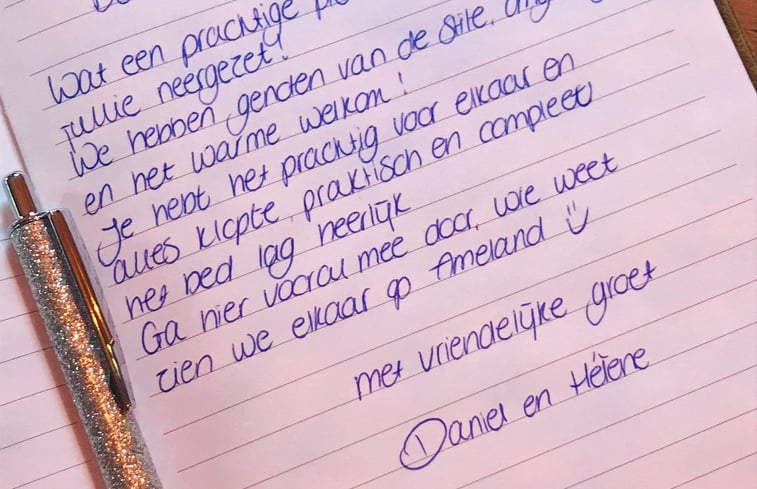 Wat een prachtige
jullie neergezet!
We hebben genoten van de stilte,
en het warme welkom!
Je hebt het prachtig voor elkaar en
alles klopte, praktisch en compleet
het bed lag heerlijk
Ga hier vooral mee door, wie weet
zien we elkaar op Ameland
met vriendelijke groet
Daniel en Hélène